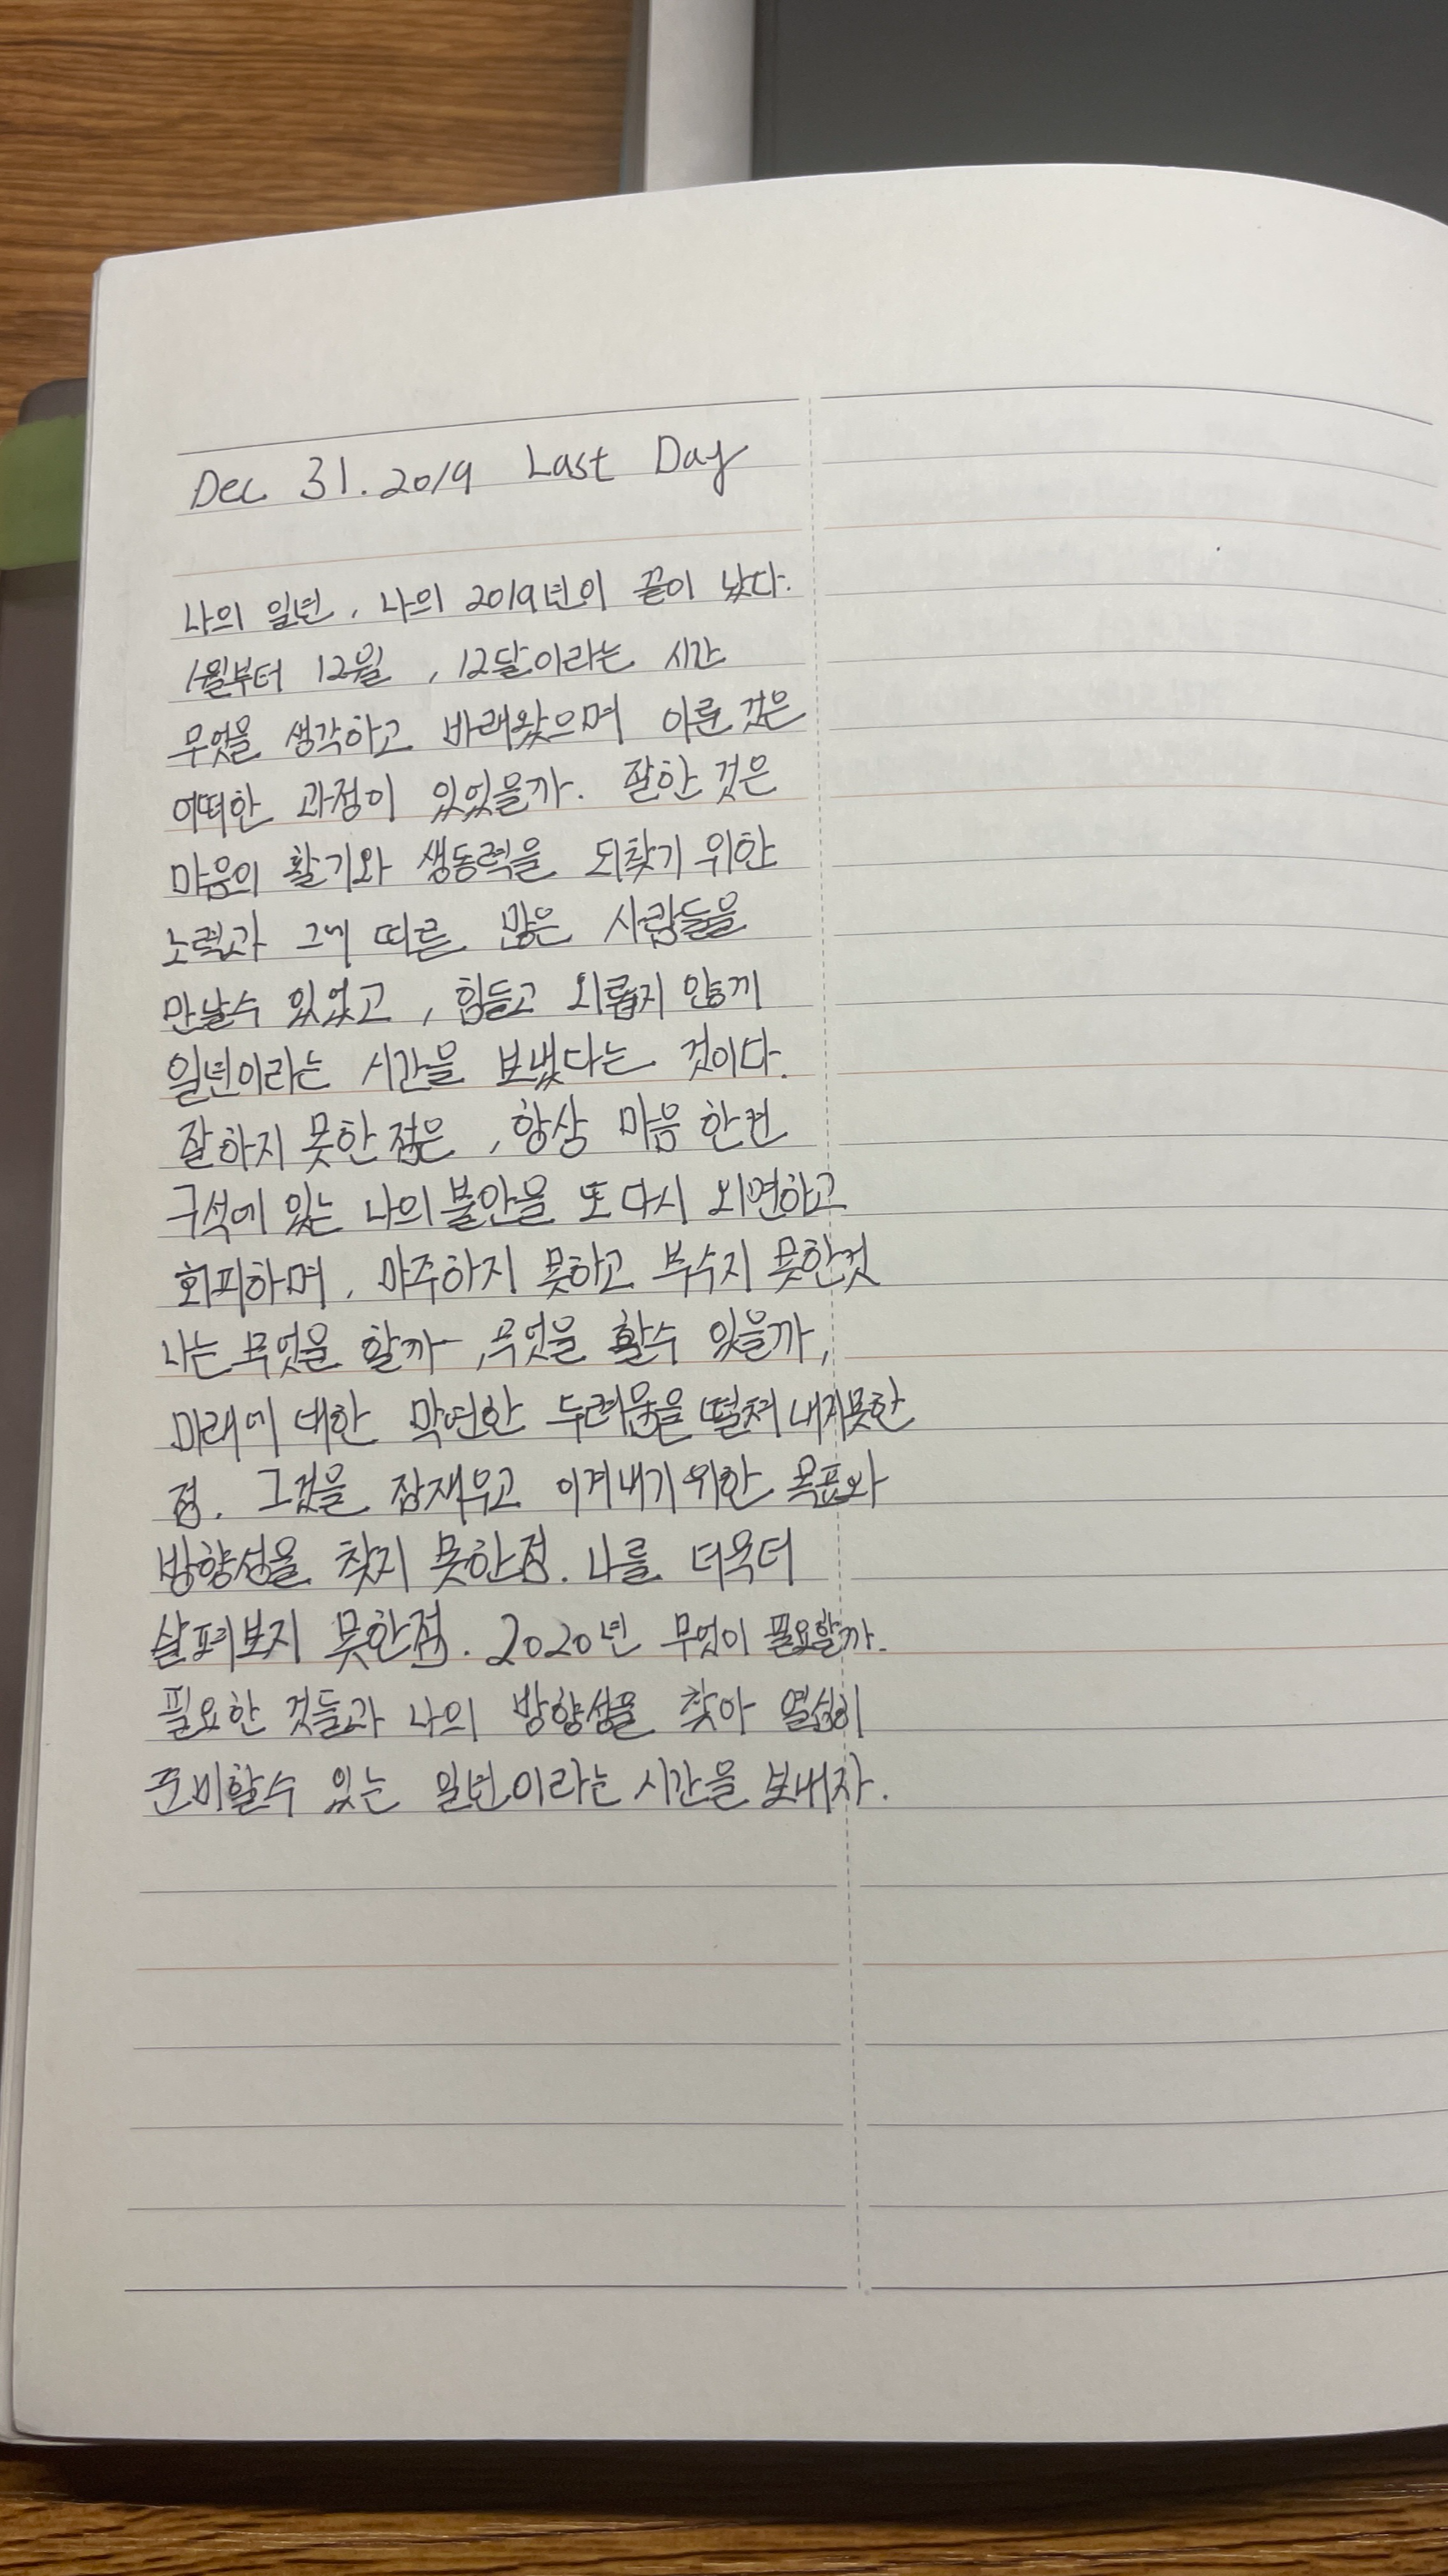 Dec 31. 2019 Last Day
나의 일년, 나의 2019년이 끝이 났다.
1월부터 12월, 12달이라는 시간
무엇을 생각하고 바래왔으며 이룬 것은
어떠한 과정이 있었을까. 잘한 것은
마음의 활기와 생동력을 되찾기 위한
노력과 그에 따른 많은 사람들을
만날수 있었고, 힘들고 외롭지 않게
일년이라는 시간을 보냈다는 것이다.
잘하지 못한 점은, 항상 마음 한켠
구석에 있는 나의 불안을 또 다시 외면하고
회피하며, 마주하지 못하고 부수지 못한것
나는 무엇을 할까, 무엇을 할수 있을까,
미래에 대한 막연한 두려움을 떨쳐 내지못한
점. 그것을 잠재우고 이겨내기 위한 목표와
방향성을 찾지 못한점. 나를 더욱더
살펴보지 못한점. 2020년 무엇이 필요할까.
필요한 것들과 나의 방향성을 찾아 열심히
준비할수 있는 일년이라는 시간을 보내자.